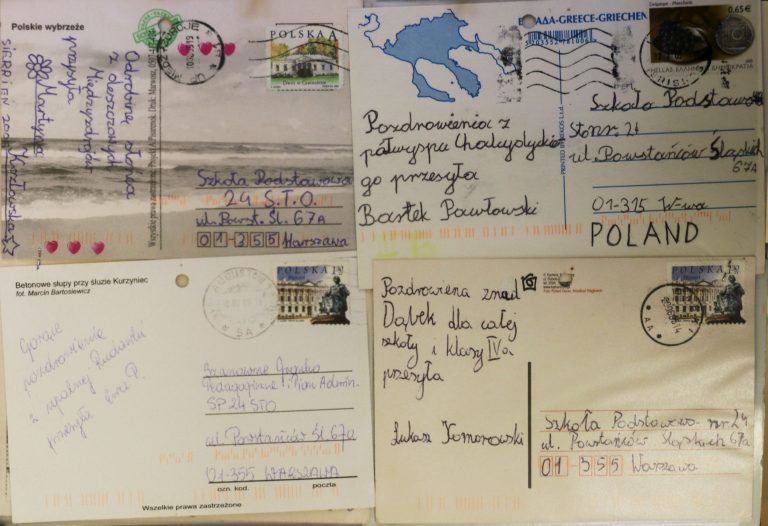 Polskie wybrzeże
POLSKA
Odrobinę słońca
z deszczowych
Międzyzdrojów
przesyła
Martyna
Kozłowska
SIERPIEŃ
Szkoła Podstawowa
24 S.T.O.
ul. Powst. Śl. 67A
01-355 Warszawa
GREECE-GRIECHEN
0.65€
Pozdrowienia z
półwyspu Chalcydyckie
go przesyła
Bartek Pawłowski
Szkoła Podstawow
STO nr. 24
ul. Powstańców Śląskich
67A
01-315 W-wa
POLAND
Betonowe słupy przy śluzie Kurzyniec
fot. Marcin Bartosiewicz
POLSKA
AUGUSTÓW
Gorące
pozdrowienia
z upalnej
przesyła
Szanowne Grono
Pedagogiczne i Pion Admin.
SP 24 STO
ul. Powstańców Śl. 67a
01-355 WARSZAWA
ozn. kod. poczta
Wszelkie prawa zastrzeżone
POLSKA
Pozdrowienia znad
Dąbek dla całej
szkoły i klasy IVa
przesyła
Łukasz Komorowski
Szkoła Podstawowa nr 24
ul. Powstańców Śląskich 67a
01 355 Warszawa